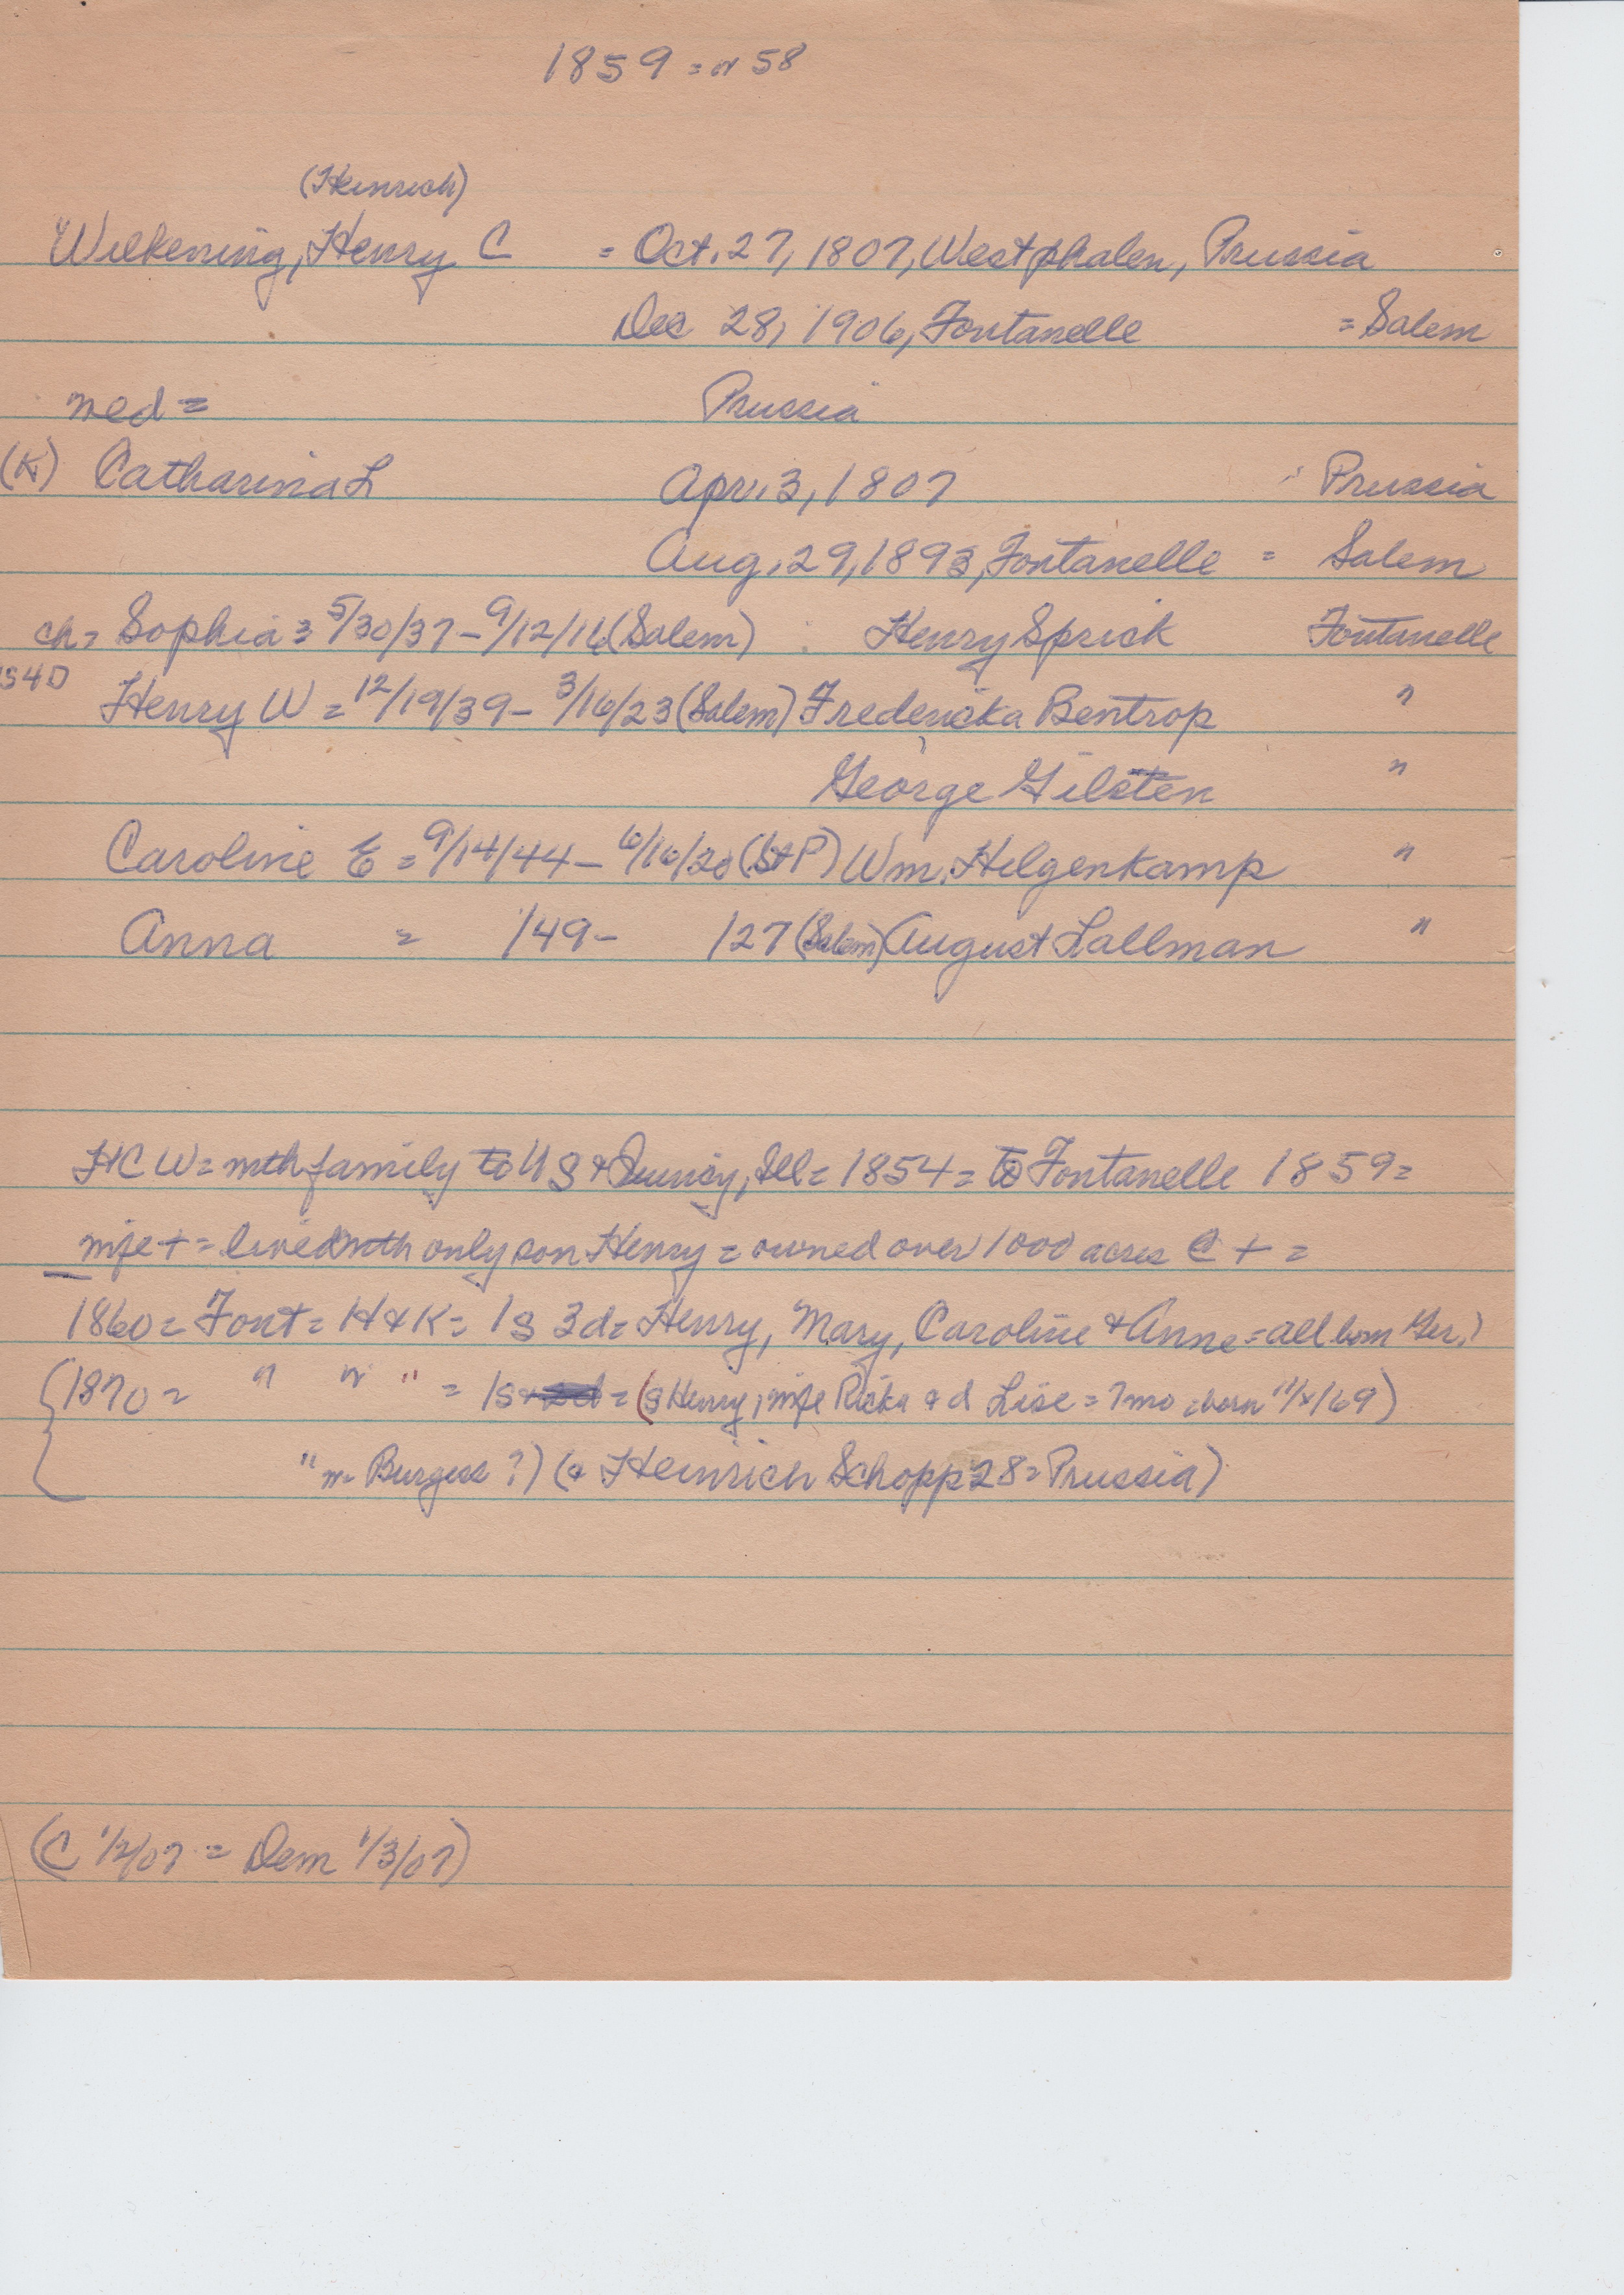 1859 = or 58
(Heinrich)
Wilkening, Henry C = Oct. 27, 1807, Westphalen, Prussia
Dec 28, 1906, Fontanelle = Salem
med = Prussia
(K) Catharina L Apr. 3, 1807 Prussia
Aug. 29, 1893, Fontanelle = Salem
ch = Sophia = 5/30/37 - 9/12/16 (Salem) Henry Sprick Fontanelle
1S4D Henry W = 12/19/39 - 3/16/23 (Salem) Fredericka Bentrop "
George Gilsten "
Caroline E = 9/14/44 - 6/16/20 (St P) Wm. Hilgenkamp "
Anna = /49 - /27 (Salem) August Lallman "
HCW = with family to US & Quincy, Ill = 1854 = to Fontanelle 1859 =
wife + = lived with only son Henry = owned over 1000 acres C + =
1860 = Font = H & K = 1s 3d = Henry, Mary, Caroline & Anne = all born Ger.)
(1870 = " " " = 1s = (s Henry, wife Ricka & d Lise = 7mo = born 11/x/69)
" m Burgess ?) (& Heinrich Schopp 28 = Prussia)
(C 1/2/07 = Dem 1/3/07)